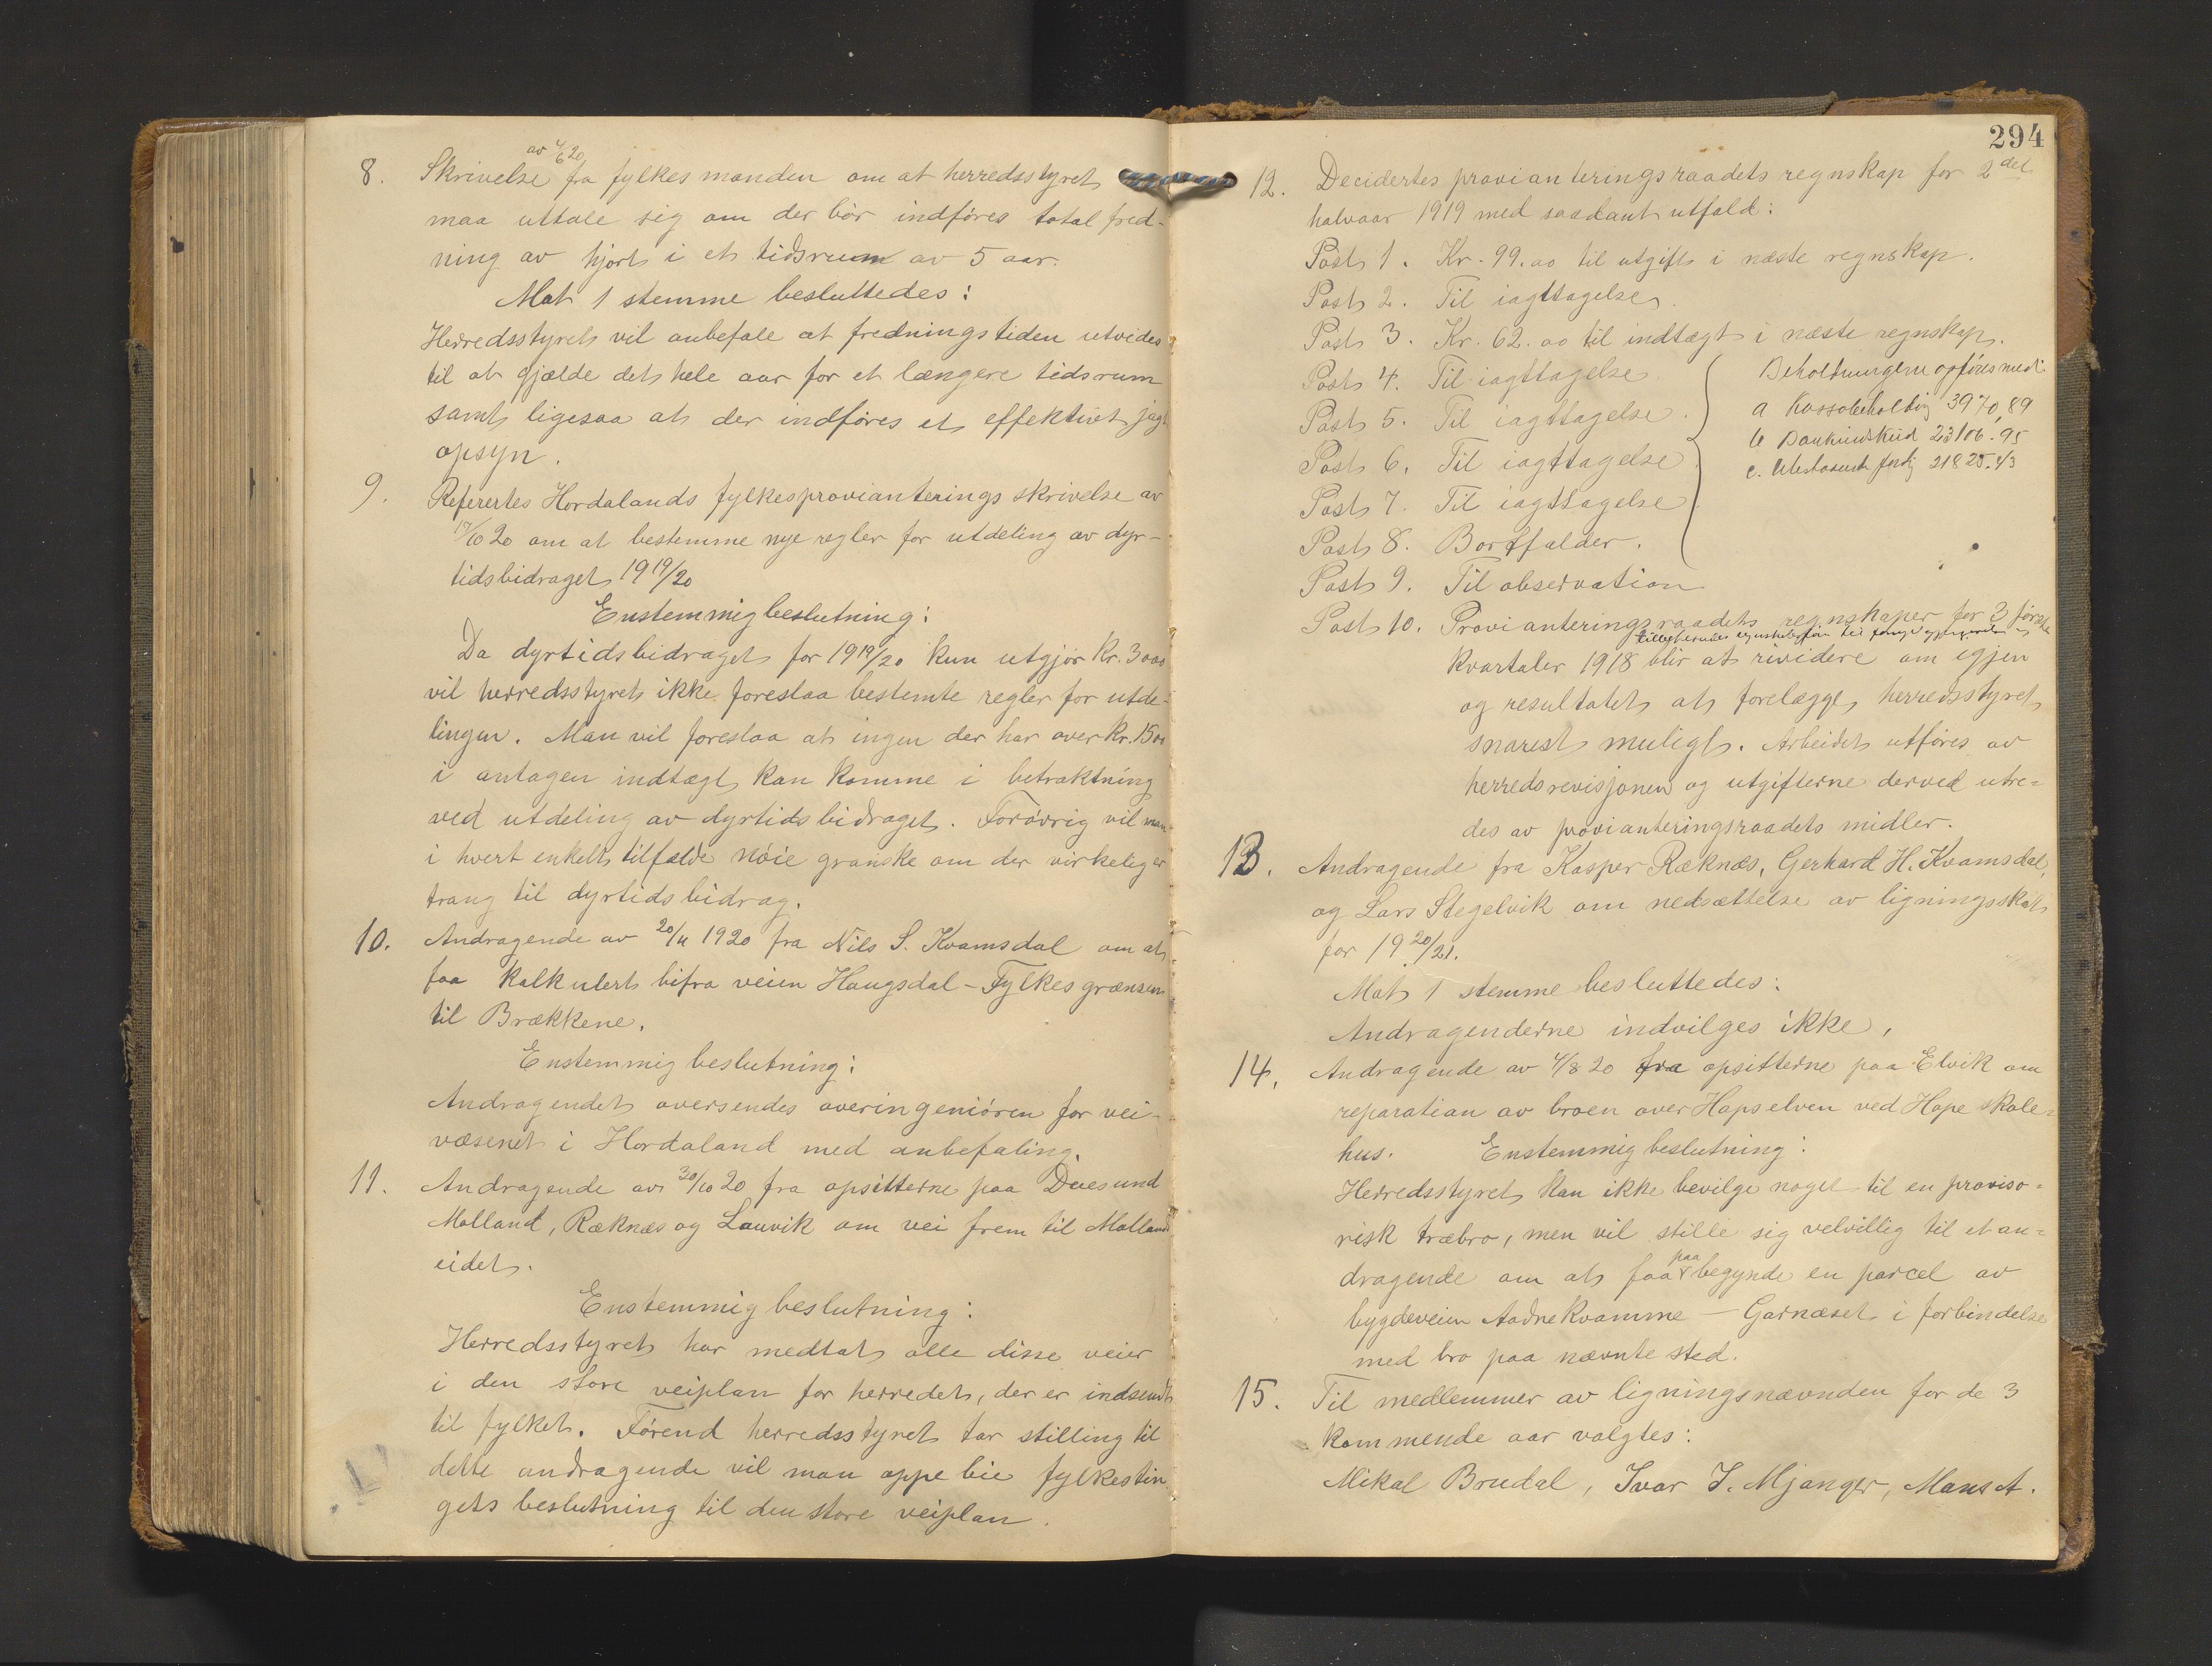 8. Skrivelse av 4/6 20 fra fylkesmanden om at herredsstyret
maa uttale sig om der bör indföres total fred-
ning av hjort i et tidsrum av 5 aar.
Mot 1 stemme besluttedes:
Herredsstyret vil anbefale at fredningstiden utvides
til at gjælde det hele aar for et længere tidsrum
samt ligesaa at der indföres et effektivt jagt
opsyn.
9. Referertes Hordalands fylkesprovianterings skrivelse av
/10 20 om at bestemme nye regler for utdeling av dyr-
tidsbidraget 1919/20
Enstemmig beslutning:
Da dyrtidsbidraget for 1919/20 kun utgjör Kr. 3000
vil herredsstyret ikke foreslaa bestemte regler for utde-
lingen. Man vil foreslaa at ingen der har over Kr. 1500
i antagen indtægt kan komme i betraktning
ved utdeling av dyrtidsbidraget. Forövrig vil man
i hvert enkelt tilfælde nöie granske om der virkelig er
trang til dyrtidsbidrag.
10. Andragende av 20/4 1920 fra Nils S. Kvamsdal om at
faa kalkulert bifra veien Haugsdal - Fylkesgrænsen
til Brækkene.
Enstemmig beslutning:
Andragendet oversendes overingeniören for vei-
væsenet i Hordaland med anbefaling.
11. Andragende av 30/10 20 fra opsitterne paa Duesund
Molland, Ræknæs og Lauvik om vei frem til Molland
eidet.
Enstemmig beslutning:
Herredsstyret har medtat alle disse veier
i den store veiplan for herredet, der er indsendt
til fylket. Förend herredsstyret tar stilling til
dette andragende vil man oppebie fylkestin
gets beslutning til den store veiplan.
294
12. Decidertes provianteringsraadets regnskap for 2det
halvaar 1919 med saadant utfald:
Post 1. Kr. 99.00 til utgift i næste regnskap.
Post 2. Til iagttagelse
Post 3. Kr. 62.00 til indtægt i næste regnskap.
Post 4. Til iagttagelse
Post 5. Til iagttagelse.
Post 6. Til iagttagelse.
Post 7. Til iagttagelse
Post 8. Bortfalder.
Beholdningerne opföres med:
a Kassabeholding 3970,89
b Bankinskud 23106.95
c. Utestaaende fordg 21825.43
Post 9. Til observation
Post 10. Provianteringsraadets regnskaper for 3 förste
kvartaler 1918 blir at rividere om igjen
og resultatet at forelægge herredsstyret
snarest muligt. Arbeidet utföres av
herredsrevisjonen og utgifterne derved utre=
des av provianteringsraadets midler.
13. Andragende fra Kasper Ræknæs, Gerhard H. Kvamsdal,
og Lars Stegelvik om nedsættelse av ligningsskat
for 1920/21.
Mot 1 stemme besluttedes:
Andragenderne indvilges ikke.
14. Andragende av 4/8 20 fra opsitterne paa Elvik om
reparation av broen over Hopselven ved Hope skole=
hus. Enstemmig beslutning:
Herredsstyret kan ikke bevilge noget til en proviso=
risk træbro, men vil stille sig velvillig til et an=
dragende om at faa paa begynde en parcel av
bygdeveien Aadnekvamme - Garnæset i forbindelse
med bro paa nævnte sted.
15. Til medlemmer av ligningsnævnden for de 3
kommende aar valgtes:
Mikal Brudal, Ivar I. Mjanger, Mans A.